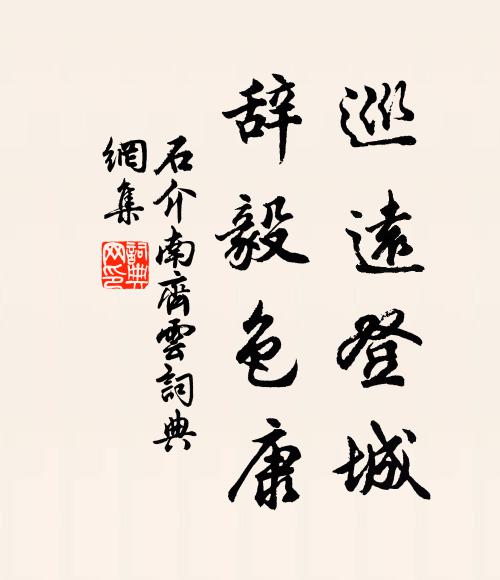 巡遠登城
辞毅色康
石介南齊雲詞典
網集
詞典
网印